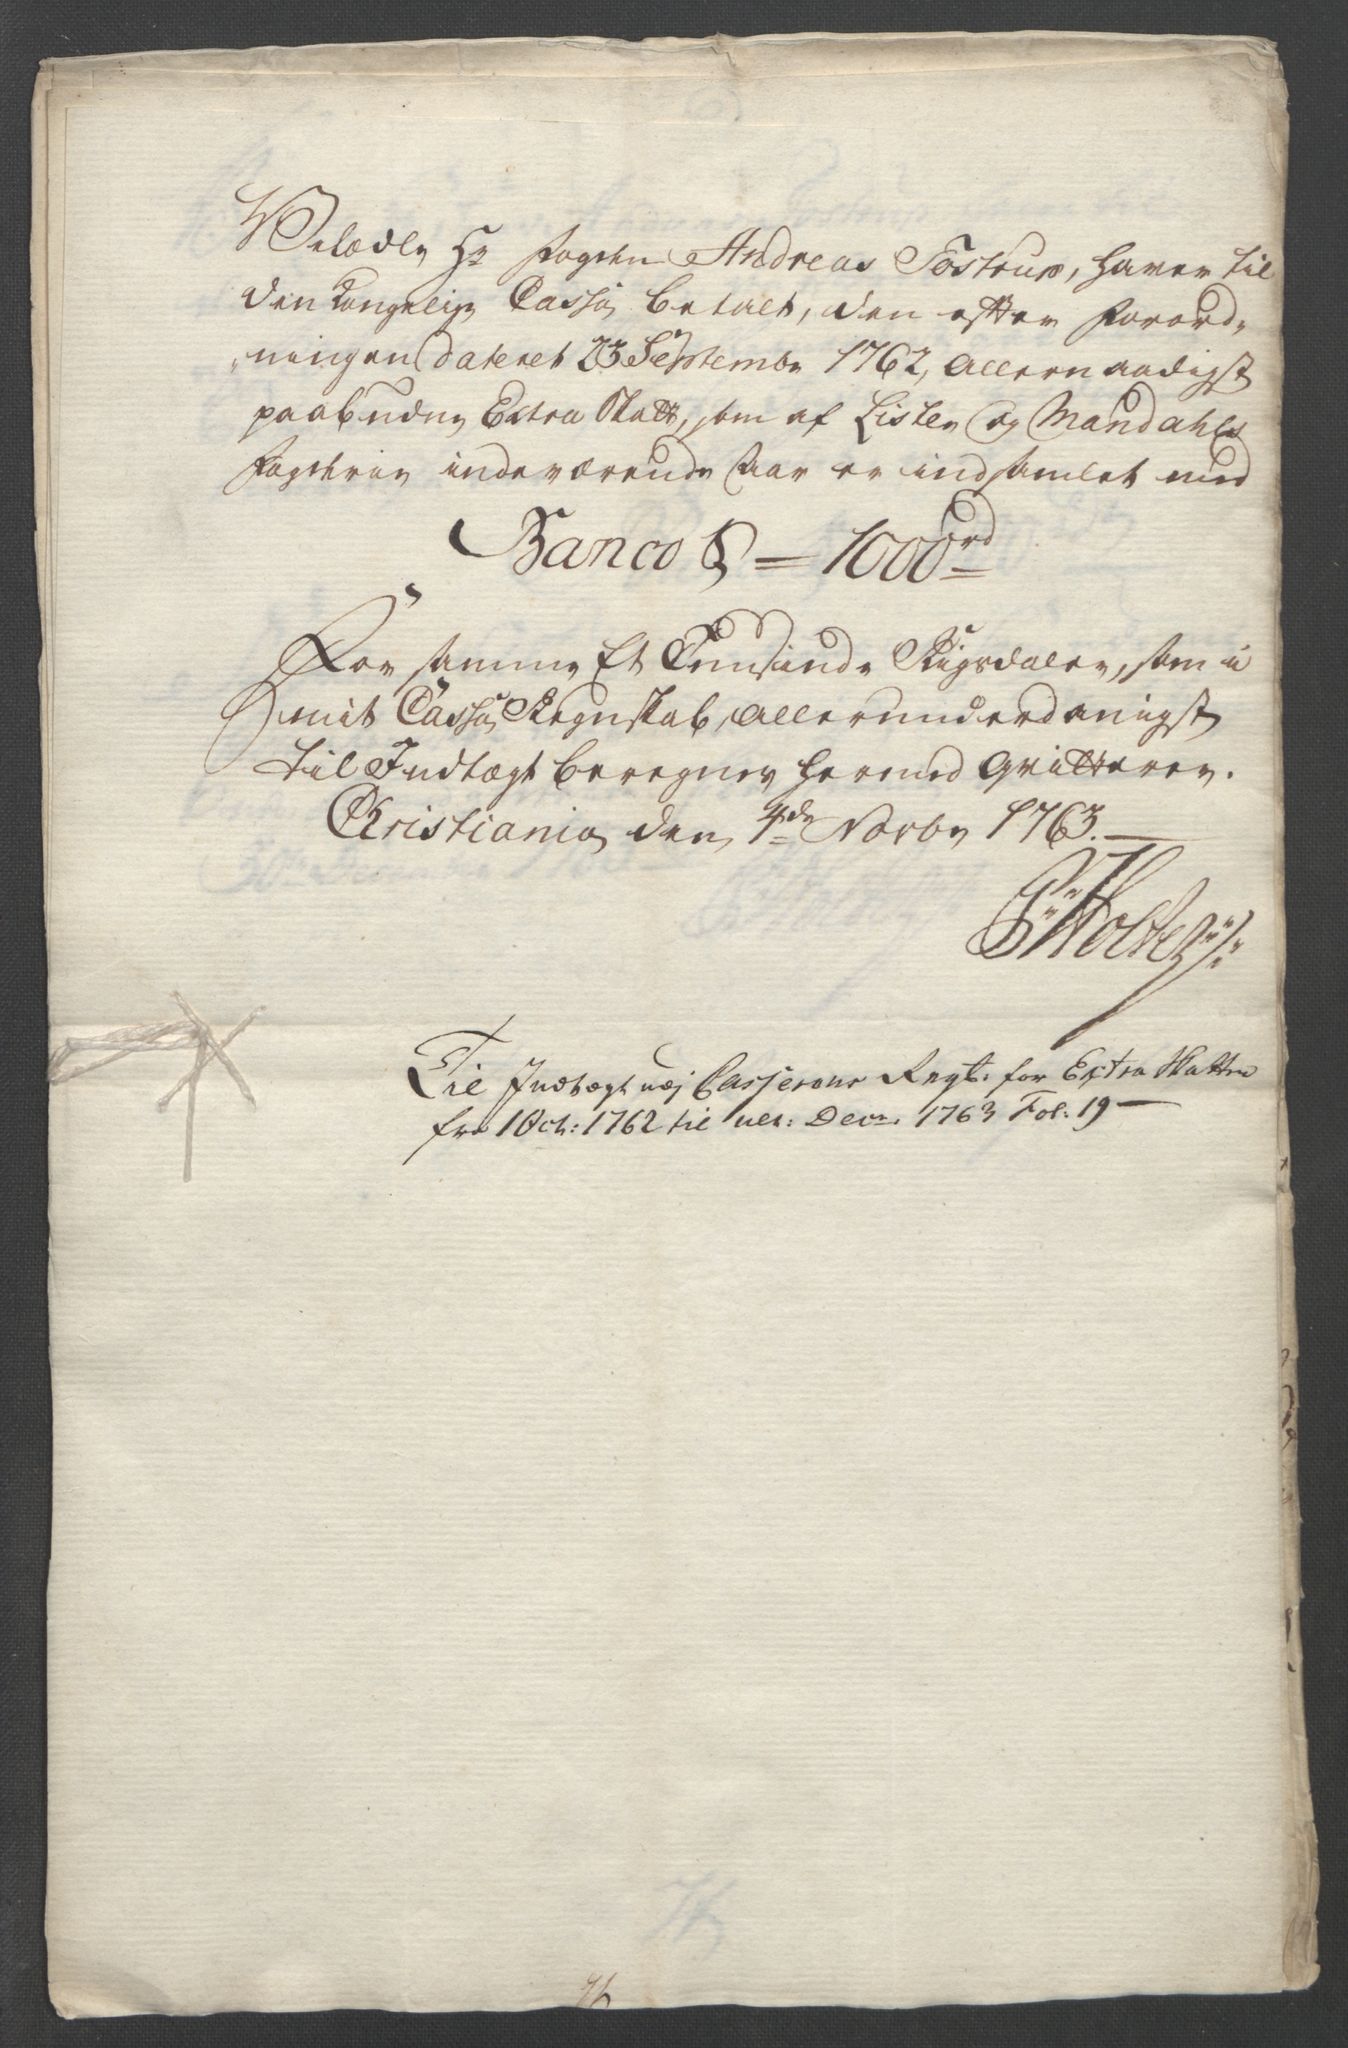 Velædle Hr Fogden Andreas Tostrup, haver til
den Kongelige Cassa betalt, den efter Forord-
ningen dateret 23 Septembr 1762, allernaadigst
paabudne Extra Skatt, som af Lister og Mandahls
Fogderie indeværende Aar er indsamlet med
Banco § = 1000 rd
For samme Et Tusinde Rigsdaler, som i
mit Cassa Regnskab, allerunderdanigst
til Indtægt beregnes hermed qvitteres.
Christiania den 4de Novbr 1763.
Holter
Til Indtægt udj Casserens Regsk: for Extra Skatten
fra 1 Oct: 1762 til ult: Decr. 1763 Fol: 19